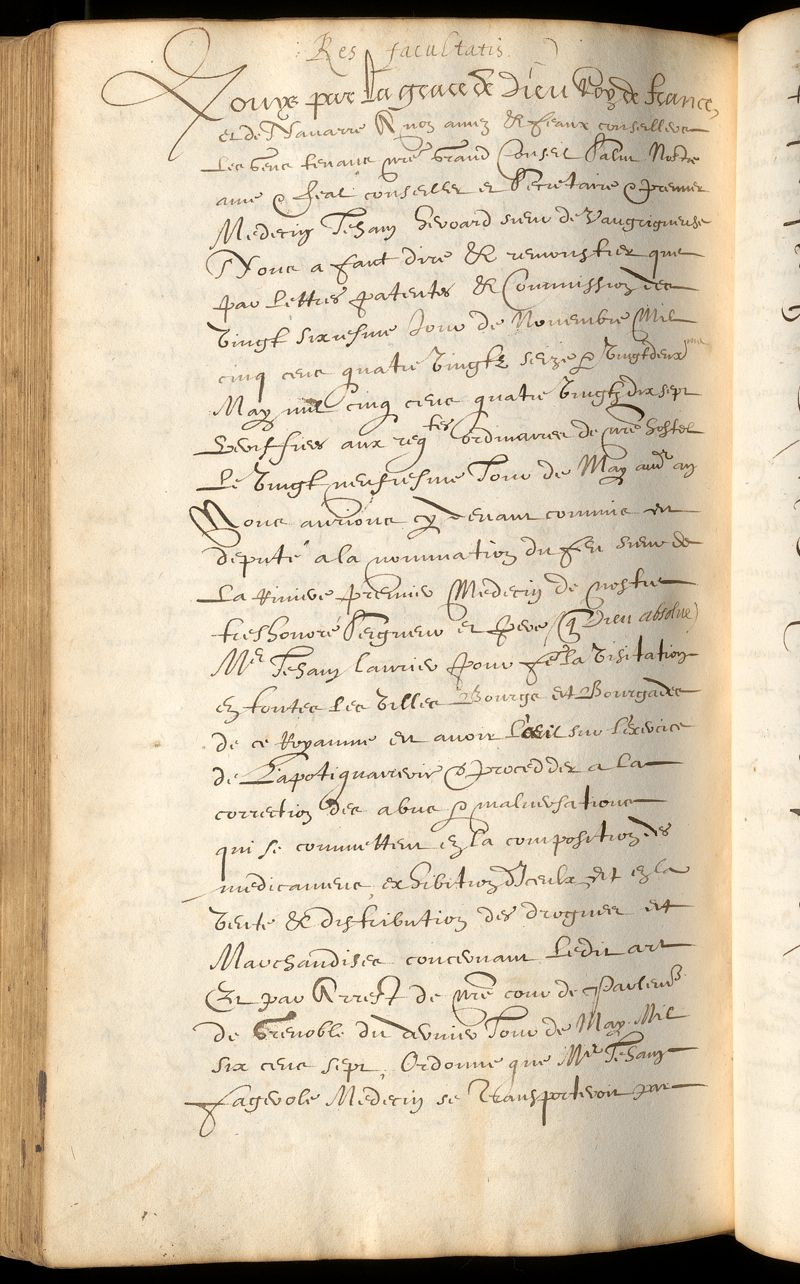 Res facultatis.
Louys par la grace de Dieu Roy de france,
et de Navarre A noz amez & feaux conseillers
Les gens tenans nre Grand Conseil Salut Nostre
ame & feal conseiller et Secretaire & premier
Medecin Jehan hervard sieur de Vaugrigneuse
Nous a faict dire & remonstrer que
par Lettres patentes & Commission des
Vingt sixiesme Jour de Novembre Mil
cinq cens quatre Vingtz seize & Vingtdeuxme
May mil cinq cens quatre Vingtz dix sept
Veriffiees aux reqtes ordinaires de nre hostel
Le Vingt neufiesme Jour de May audt an
Nous aurions cy devant commis et
depute a la nomination du feu sieur de
La Riviere premier Medecin de nostre
treshonore Seigneur et pere (q Dieu absolve)
Me Jehan laurier pour fe la Visitation
en toutes Les Villes Bourgs et Bourgades
de ce Royaume et avoir L'oeil sur l'exercice
de L'apotiquairerie & procedder a la
correction des abus & malversations
qui se commettent en la composition des
medicamens, exhibition d'Iceulx et en la
Vente & distribution des drogues et
Marchandises concernant Ledit art
Et par Arrest de nre cour de Parlemt
de Grenoble du dernier Jour de May Mil
six cens sept, Ordonne que Me Jehan
fagerole Medecin se Transporteroit par